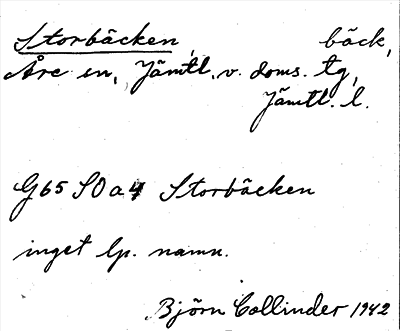 Storbäcken, bäck,
Åre sn, Jämtl. v. doms. tg,
Jämtl. l.
G65 SO a 4 Storbäcken
inget lp. namn.
Björn Collinder 1942